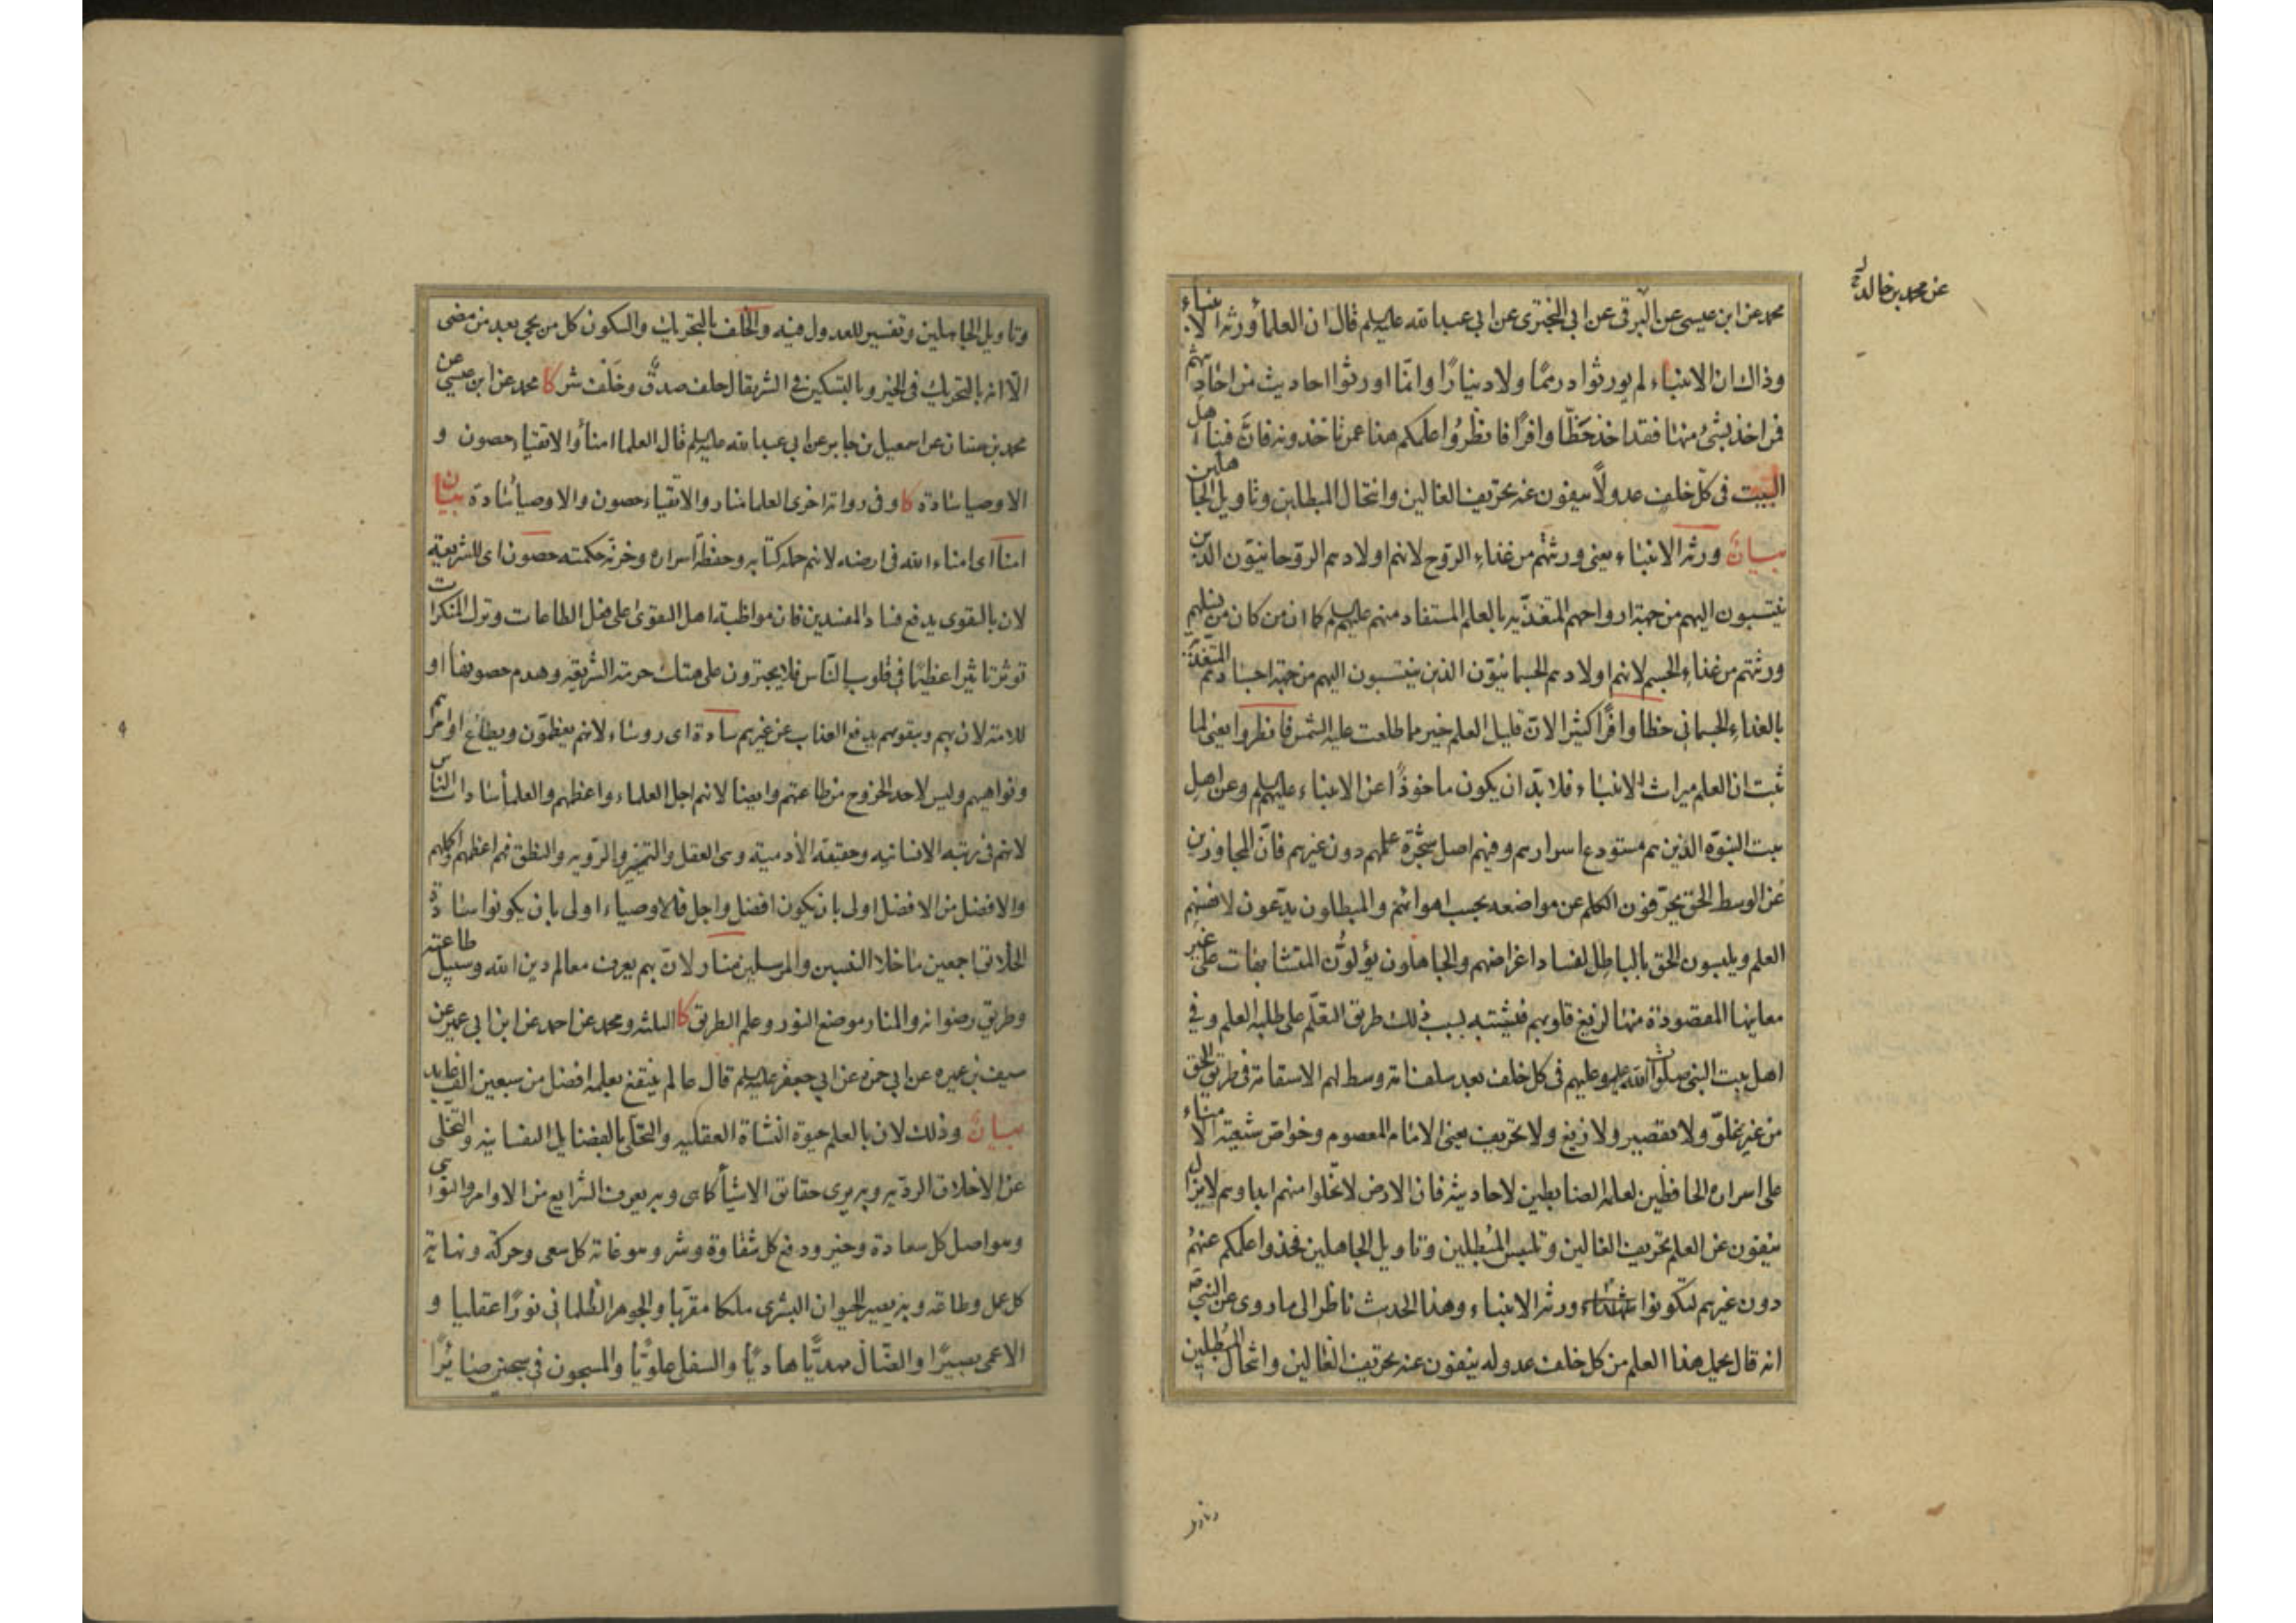 عن محمد بن خالد
محمد عن ابن عيسى عن البرقى عن ابى البخترى عن ابى عبد الله عليه السلم قال ان العلماء ورثة الانبياء
وذاك ان الانبياء لم يورثوا درهمًا ولا دينارًا وانمّا اورثوا احاديث من احاديثهم
فمن اخذ بشئ منها فقد اخذ حَظًّا وافرًا فانظُرُوا علمكم هذا عمن تاخذونه فانَّ فينا اهل
البيت فى كلّ خلف عدولًا ينفون عنه تحريف الغالين وانتحال المبطلين وتاويل الجاهلين
بيان ورثة الانبياء يعنى ورثتهم من غذاء الروح لانهم اولادهم الروحانيون الذين
ينتسبون اليهم من جهة ارواحهم المتغذّية بالعلم المستفاد منهم عليهم السلم كما ان من كان من نسلهم
ورثتهم من غذاء الجسم لانهم اولادهم الجسمانيّون الذين ينتسبون اليهم من جهة اجسادهم المتغذية
بالغذاء الجسمانى حظا وافرًا كثيرا لانّ قليل العلم خير مما طلعت عليه الشمس فانظروا يعنى لما
ثبت ان العلم ميراث الانبياء فلا بدّ ان يكون ماخوذًا عن الانبياء عليهم السلم وعن اهل
بيت النبوّة الذين هم مستودع اسرارهم وفيهم اصل شجرة علمهم دون غيرهم فانّ المجاوزين
عن الوسط الحق يحرّفون الكلم عن مواضعه بحسب اهوائهم والمبطلون يدّعون لانفسهم
العلم ويلبسون الحق بالباطل لفساد اغراضهم والجاهلون يؤلون المتشابهات على غير
معانيها المقصودة منها لزيغ قلوبهم فيشتبه بسبب ذلك طريق التعلّم على طلبة العلم وفى
اهل بيت النبى صلوات الله عليه وعليهم فى كل خلف بعد سلف امة وسط لهم الاستقامة فى طريق الحق
من غير غلوّ ولا تقصير ولا زيغ ولا تحريف يعنى الامام المعصوم وخواص شيعته الامناء
على اسراره الحافظين لعلمه الضابطين لاحاديثه فان الارض لا تخلوا منهم ابدا وهم لا يزال
ينفون عن العلم تحريف الغالين وتلبيس المُبطلين وتاويل الجاهلين فخذوا علمكم عنهُم
دون غيرهم لتكونوا ورثة الانبياء وهذا الحديث ناظر الى ما روى عن النبى
انه قال يحمل هذا العلم من كل خلف عدوله ينفون عنه تحريف الغالين وانتحال المُبطلين
وتاويل
وتاويل الجاهلين وتفسير للعدول فيه والخلف بالتحريك والسكون كل من يجى بعد من مضى
الّا انه بالتحريك فى الخير وبالتسكين فى الشر يقال خلف صدق وخَلْف شر كا محمد عن ابن عيسى عن
محمد بن سنان عن اسمعيل بن جابر عن ابى عبد الله عليه السلم قال العلما امناء والاتقياء حصون و
الاوصيا سادة كا وفى رواية اخرى العلما منار والاتقياء حصون والاوصياء سادة بيان
امنا اى امناء الله فى ارضه لانهم حملة كتابه وحفظة اسراره وخزنة حكمته حصون اى للشريعة
لان بالتقوى يدفع فساد المفسدين فان مواظبة اهل التقوى على فعل الطاعات وترك المنكرات
توثر تاثيرا عظيمًا فى قلوب الناس فلا يجترون على هتك حرمة الشريعة وهدم حصونها او
للامة لان بهم وبتقويهم يدفع العذاب عن غيرهم سادة اى روساء لانهم يعظمّون ويطاع اوامرهم
ونواهيهم وليس لاحد الخروج من طاعتهم وايضا لانهم اجل العلماء واعظمهم والعلماء سادات الناس
لانهم فى رتبة الانسانيه وحقيقة الآدمية وهى العقل والتمييز والروية والنطق فهم اعظمهم واكملهم
والافضل من الافضل اولى بان يكون افضل واجل فالاوصياء اولى بان يكونوا سادة
الخلائق اجمعين ما خلا النبيين والمرسلين منار لانّ بهم يعرف معالم دين الله وسبيل طاعته
وطريق رضوانه والمنار موضع النور وعلم الطريق كا الثلثة ومحمد عن احمد عن ابن ابى عمير عن
سيف بن عميره عن ابى حمزه عن ابى جعفر عليه السلم قال عالم ينتفع بعلمه افضل من سبعين الف عابد
بيان وذلك لان بالعلم حيوة النشاة العقليه والتحلى بالفضايل النفسانية والتخلى
عن الاخلاق الرديه وبه يرى حقائق الاشياء كما هى وبه يعرف الشرايع من الاوامر والنواهى
وهو اصل كل سعادة وخير ودفع كل شقاوة وشر وهو غاية كل سعى وحركة ونهاية
كل عمل وطاقه وبه يصير الحيوان البشرى ملكا مقربا والجوهر الظلمانى نورًا عقليا و
الاعمى بصيرًا والضّال مهديًّا هاديًا والسفل علويًّا والمسجون فى سجين صائرًا